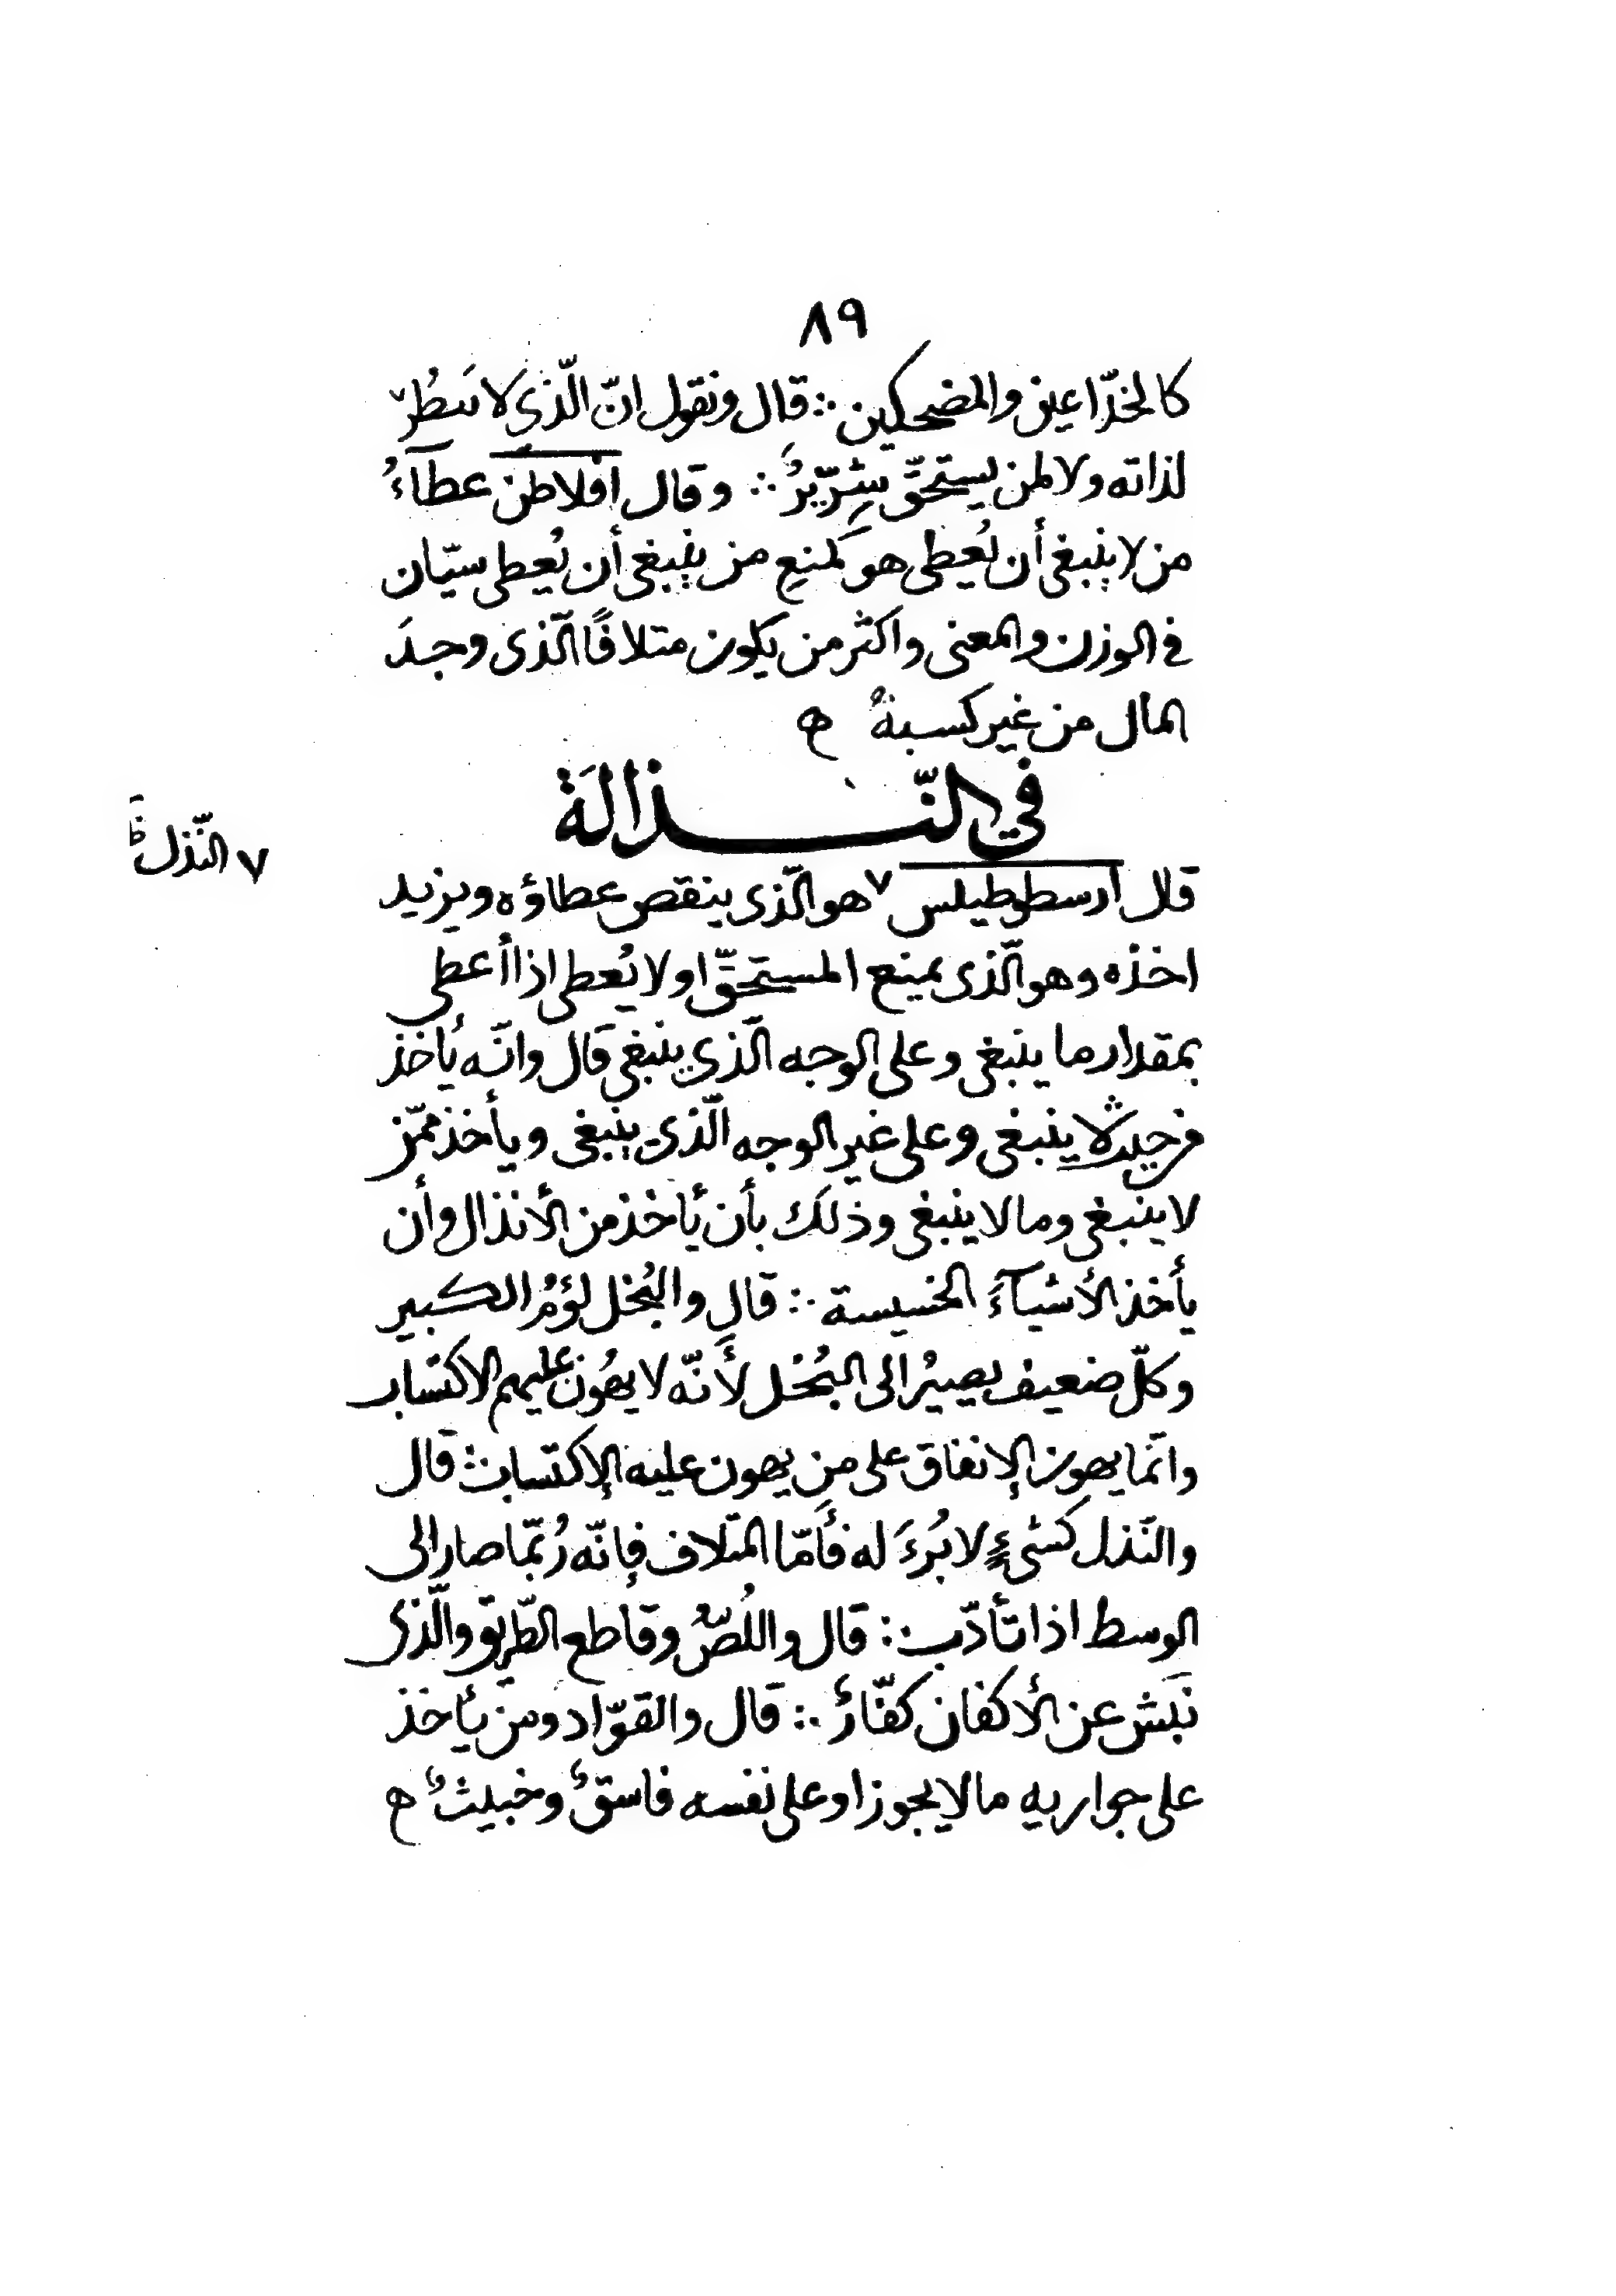 ٨٩
كالخدّاعين والمضحكين ∴ قال ونقول انّ الّذي لا
لذاته ولا لمن يستحقّ شِرّيرٌ ∴ وقال افلاطن عطآءُ
من لا ينبغي أن يُعطى هو كمنع من ينبغي أن يُعطى سيّان
في الوزن والمعنى واكثر من يكون متلافًا الّذى وجدَ
المال من غير كسبهٌ ه
في النّذالَة
قال أرسطوطيلس ٧ هو الّذى ينقص عطاؤه ويزيد
٧ النّذل
اخذه وهو الّذى يمنع المستحقّ او لا يُعطى اذا أعطى
بمقدار ما ينبغي وعلى الوجه الّذي ينبغي قال وانّه يأخذ
من حيث لا ينبغي وعلى غير الوجه الّذي ينبغي ويأخذ ممّن
لا ينبغي وما لا ينبغي وذلك بأن يأخذ من الأنذال وأن
يأخذ الأشيآءَ الخسيسة ∴ قال والبُخل لؤمُ الكبير
وكلّ ضعيف يصيرُ الى البُخل لأنّه لا يهُون عليهم الاكتساب
وانّما يهون الإنفاق على من يهون عليه الإكتساب ∴ قال
والنّذل كشىءٍ لا بُرءَ له فأمّا المتلاف فإنّه رُبّما صار الى
الوسط اذا تأدّب ∴ قال واللُصّ وقاطع الطّريق والّذى
نَبَش عن الأكفان كفّارٌ ∴ قال والقوّاد ومن يأخذ
على جواريه ما لا يجوز او على نفسه فاسقٌ وخبيثٌ ه